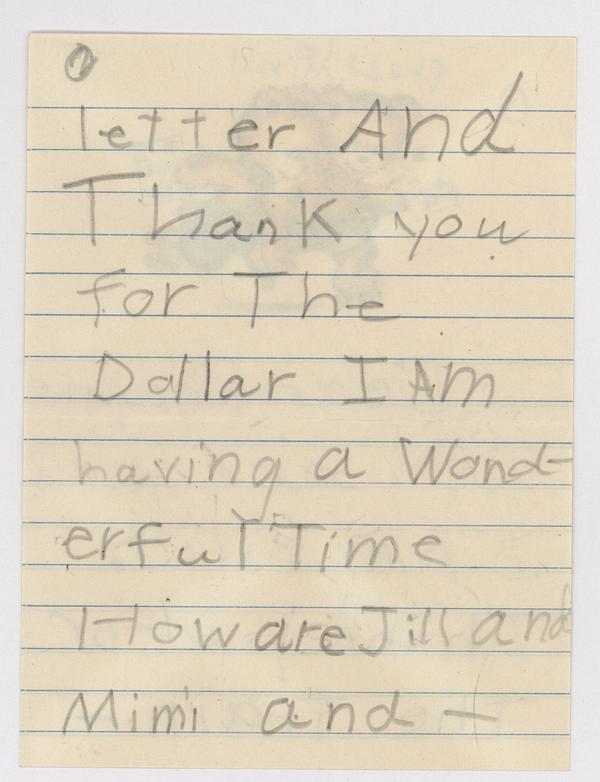 letter And
Thank you
for The
Dollar I AM
having a Wond-
erful Time
How are Jill and
Mimi and —